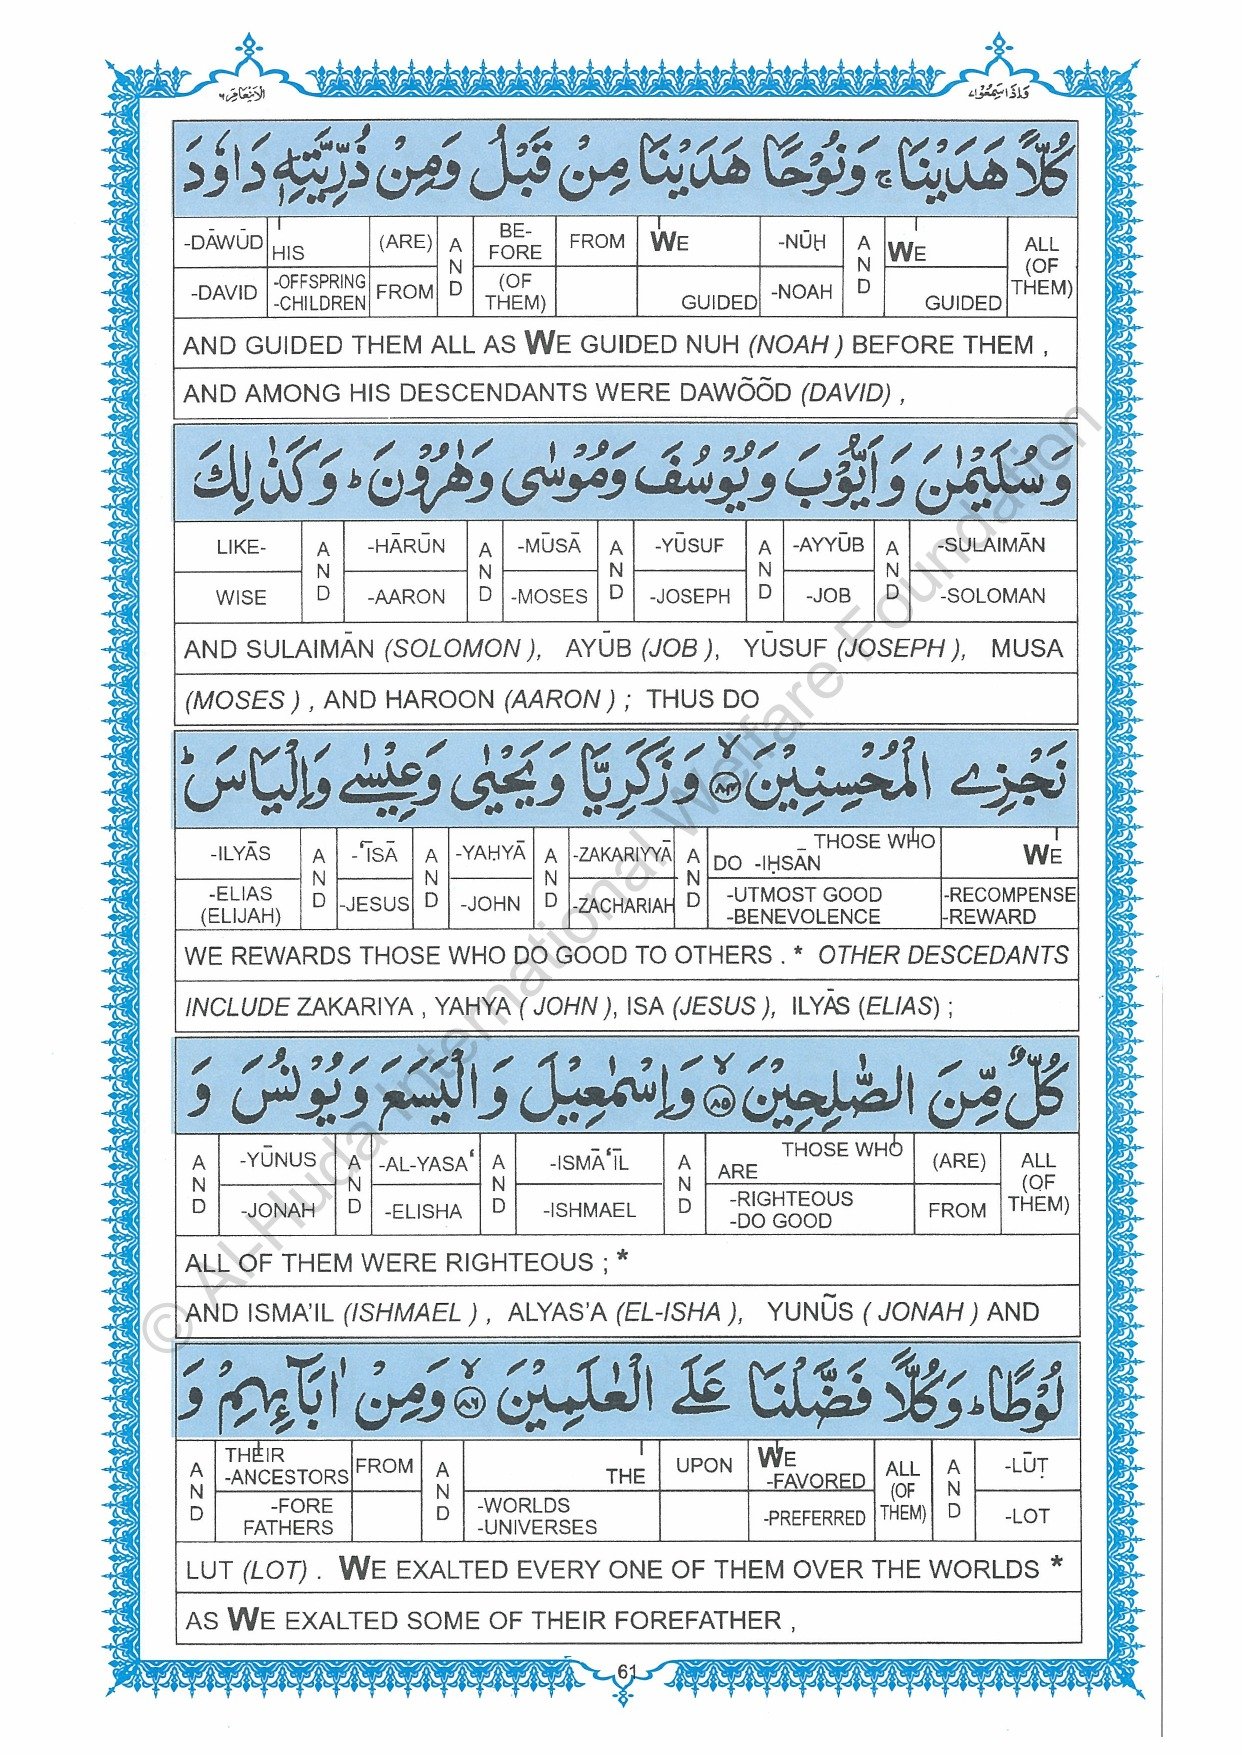 وَاِذَا سَمِعُوْا ٧ الۡاَنۡعَام ٦
كُلًّا هَدَيْنَا ۚ وَنُوْحًا هَدَيْنَا مِنْ قَبْلُ وَمِنْ ذُرِّيَّتِهٖ دَاوٗدَ
-DĀWŪD HIS (ARE) AND BE-FORE FROM WE -NŪḤ AND WE ALL (OF THEM)
-DAVID -OFFSPRING -CHILDREN FROM (OF THEM) GUIDED -NOAH GUIDED
AND GUIDED THEM ALL AS WE GUIDED NUH (NOAH ) BEFORE THEM ,
AND AMONG HIS DESCENDANTS WERE DAWÕÕD (DAVID) ,
وَسُلَيْمٰنَ وَاَيُّوْبَ وَيُوْسُفَ وَمُوْسٰى وَهٰرُوْنَ ؕ وَكَذٰلِكَ
LIKE- AND -HĀRŪN AND -MŪSĀ AND -YŪSUF AND -AYYŪB AND -SULAIMĀN
WISE -AARON -MOSES -JOSEPH -JOB -SOLOMAN
AND SULAIMĀN (SOLOMON ), AYŪB (JOB ), YŪSUF (JOSEPH ), MUSA
(MOSES ) , AND HAROON (AARON ) ; THUS DO
نَجْزِے الْمُحْسِنِيْنَ ۙ‏﴿۸۴﴾ وَزَكَرِيَّا وَيَحْيٰى وَعِيْسٰے وَاِلْيَاسَ ؕ
-ILYĀS AND -‘ĪSĀ AND -YAHYĀ AND -ZAKARIYYĀ AND THOSE WHO DO -IḤSĀN WE
-ELIAS (ELIJAH) -JESUS -JOHN -ZACHARIAH -UTMOST GOOD -BENEVOLENCE -RECOMPENSE -REWARD
WE REWARDS THOSE WHO DO GOOD TO OTHERS . * OTHER DESCEDANTS
INCLUDE ZAKARIYA , YAHYA ( JOHN ), ISA (JESUS ), ILYĀS (ELIAS) ;
كُلٌّ مِّنَ الصّٰلِحِيْنَ ۙ‏﴿۸۵﴾ وَاِسْمٰعِيْلَ وَالْيَسَعَ وَيُوْنُسَ وَ
AND -YŪNUS AND -AL-YASA‘ AND -ISMĀ‘ĪL AND THOSE WHO ARE (ARE) ALL (OF THEM)
-JONAH -ELISHA -ISHMAEL -RIGHTEOUS -DO GOOD FROM
ALL OF THEM WERE RIGHTEOUS ; *
AND ISMA’IL (ISHMAEL ) , ALYAS’A (EL-ISHA ), YUNŨS ( JONAH ) AND
لُوْطًا ؕ وَكُلًّا فَضَّلْنَا عَلَے الْعٰلَمِيْنَ ۙ‏﴿۸۶﴾ وَمِنْ اٰبَآئِهِمْ وَ
AND THEIR -ANCESTORS FROM AND THE UPON WE -FAVORED ALL (OF THEM) AND -LŪṬ
-FORE FATHERS -WORLDS -UNIVERSES -PREFERRED -LOT
LUT (LOT) . WE EXALTED EVERY ONE OF THEM OVER THE WORLDS *
AS WE EXALTED SOME OF THEIR FOREFATHER ,
61
© Al-Huda International Welfare Foundation